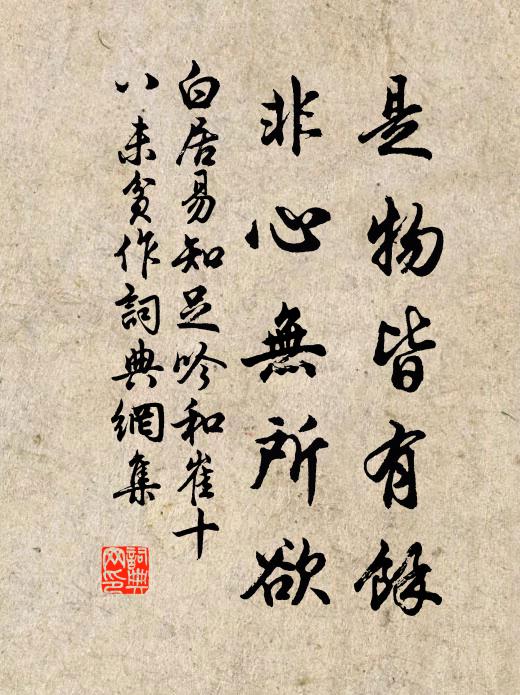 是物皆有餘
非心無所欲
白居易知足吟和崔十
八未貧作詞典網集
詞典網印